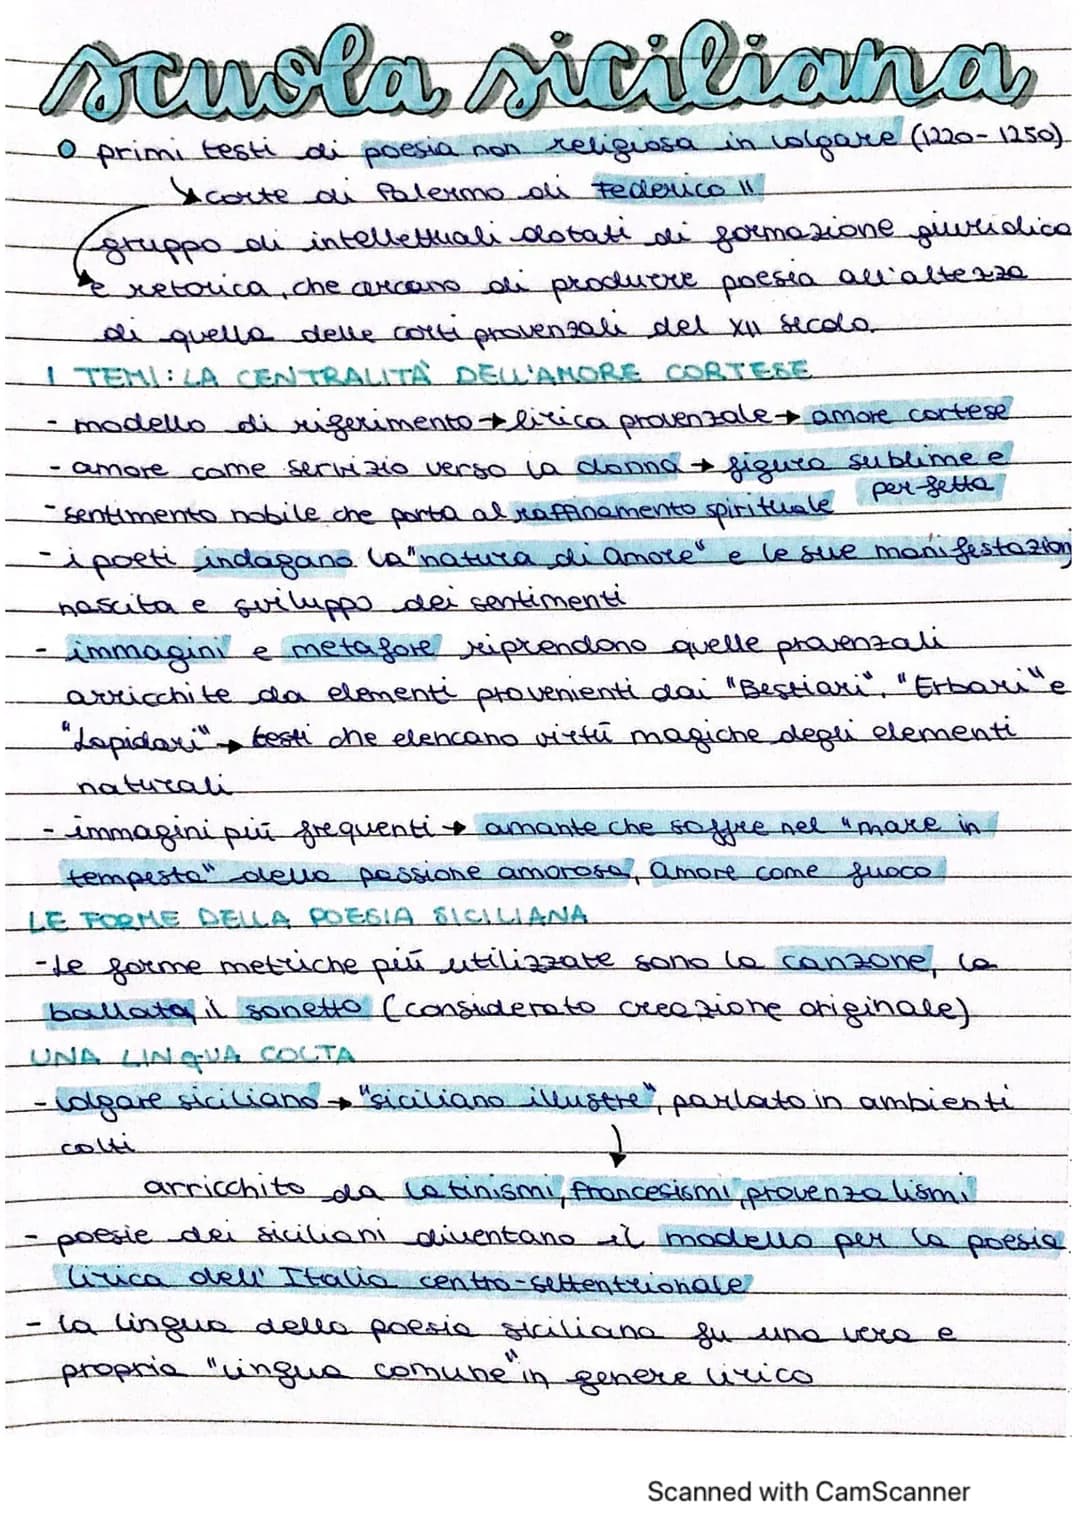 scuola siciliana
primi testi di poesia non religiosa in volgare (1220-1250)
corte di Palermo di Federico II
gruppo di intellettuali dotati di formazione giuridica
e retorica, che cercano di produrre poesia all'altezza
di quella delle corti provenzali del XII secolo.
I TEMI: LA CENTRALITÀ DELL'AMORE CORTESE
- modello di riferimento → lirica provenzale → amore cortese
- amore come servizio verso la donna → figura sublime e
perfetta
- sentimento nobile che porta al raffinamento spirituale
- i poeti indagano la "natura di Amore" e le sue manifestazioni
nascita e sviluppo dei sentimenti
- immagini e metafore riprendono quelle provenzali
arricchite da elementi provenienti dai "Bestiari", "Erbari" e
"Lapidari" → testi che elencano virtù magiche degli elementi
naturali
- immagini più frequenti → amante che soffre nel "mare in
tempesta" della passione amorosa, Amore come fuoco
LE FORME DELLA POESIA SICILIANA
- Le forme metriche più utilizzate sono la canzone, la
ballata, il sonetto (considerato creazione originale)
UNA LINGUA COLTA
- volgare siciliano → "siciliano illustre", parlato in ambienti
colti
arricchito da latinismi, francesismi, provenzalismi
- poesie dei siciliani diventano il modello per la poesia
lirica dell'Italia centro-settentrionale
- la lingua della poesia siciliana fu una vera e
propria "lingua comune" in genere lirico
Scanned with CamScanner